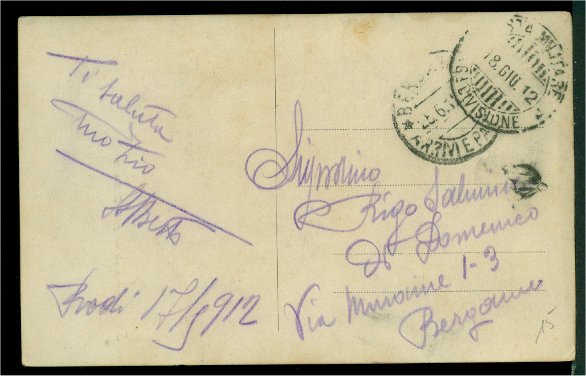 Ti saluta
tuo zio
Alberto
Rodi 17/6 912
Signorino
Rigo
di Domenico
Via Muraine 1-3
Bergamo
POSTA MILITARE
18.GIU.12
DIVISIONE
ARRIVI E P
15